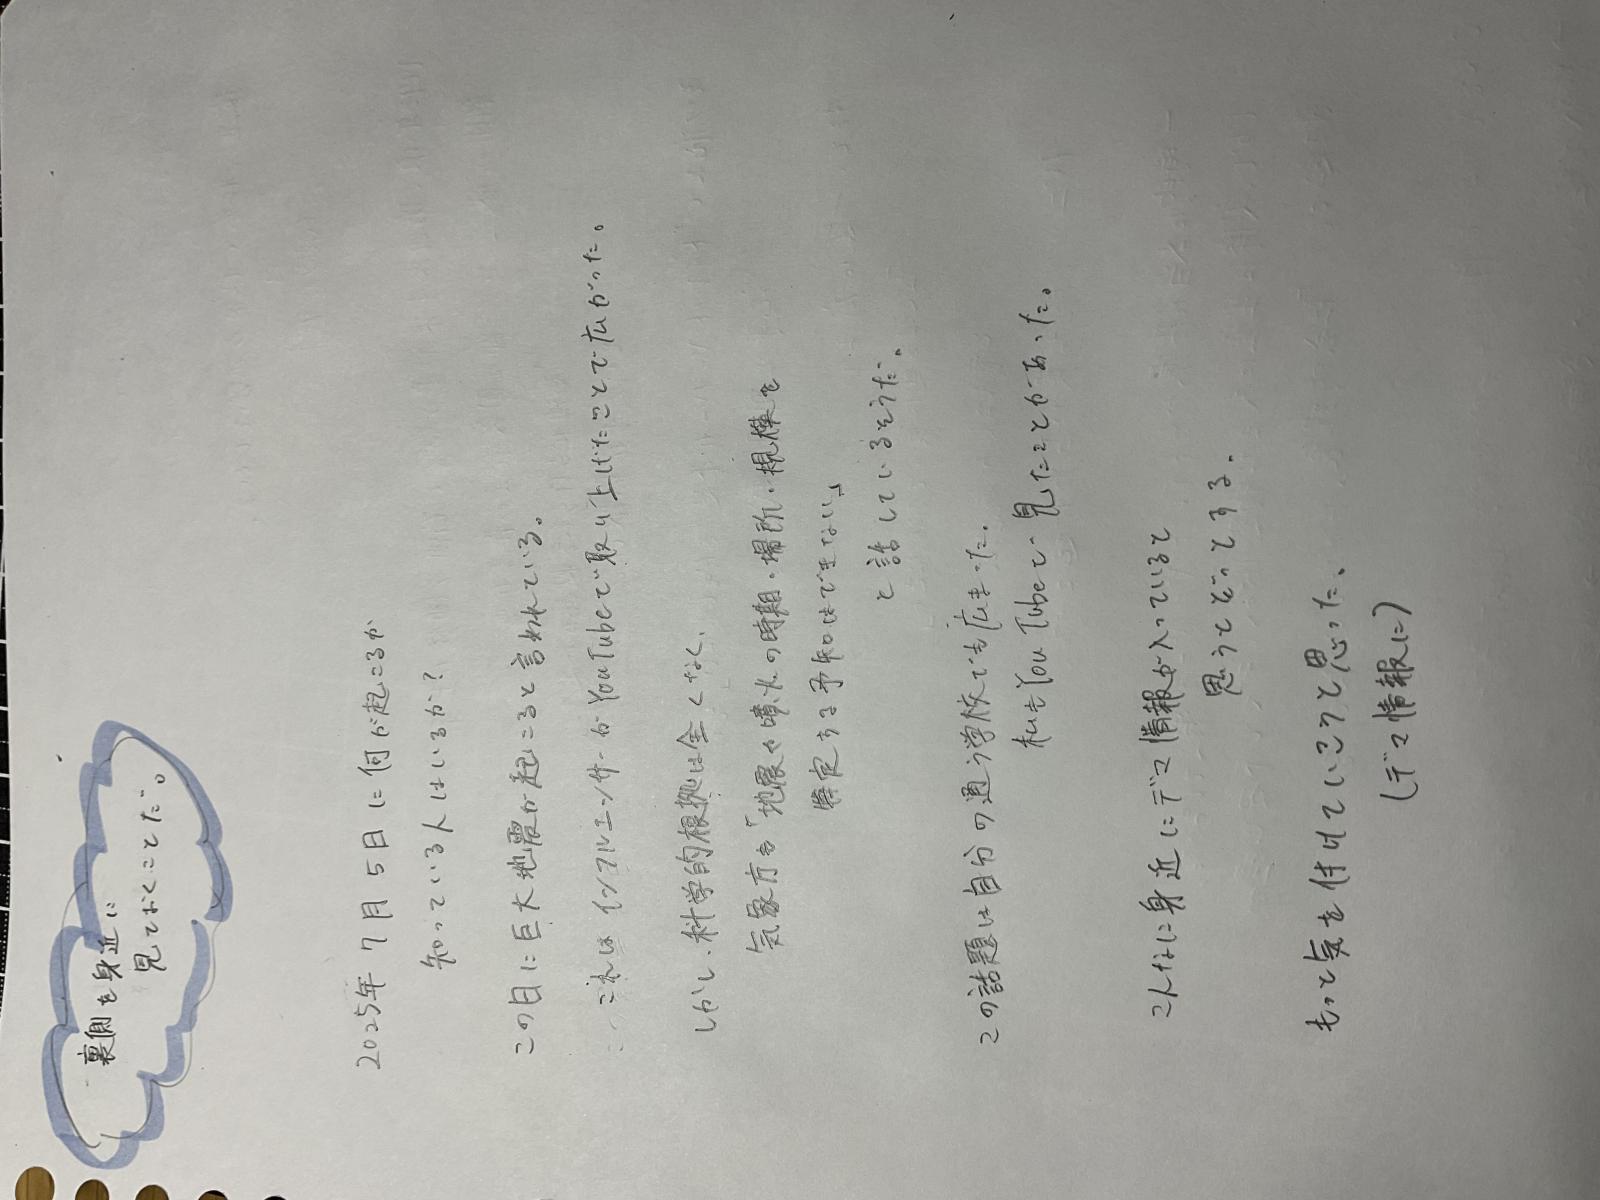 裏側を身近に
見ておくことだ。
2025年7月5日に何が起こるか
知っている人はいるか？
この日に巨大地震が起こると言われている。
これはインフルエンサーがYouTubeで取り上げたことで広がった。
しかし、科学的根拠は全くなく、
気象庁も「地震や噴火の時期・場所・規模を
特定する予知はできない」
と話しているそうだ。
この話題は自分の通う学校でも広まった。
私もYouTubeで見たことがあった。
こんなに身近にデマ情報が入っていると
思うとぞっとする。
もっと気を付けていこうと思った、
(デマ情報に)